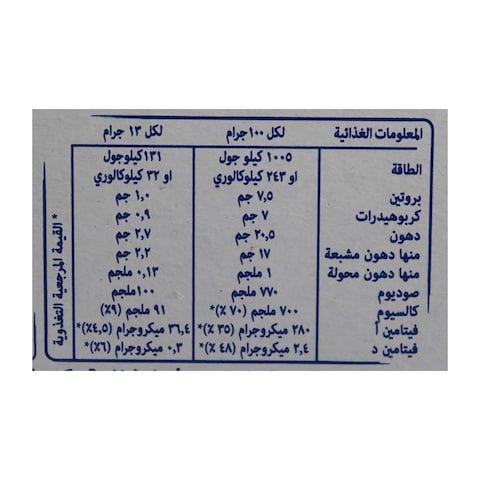 المعلومات الغذائية لكل ١٠٠جرام لكل ١٣ جرام
الطاقة ١٠٠٥ كيلو جول ١٣١كيلوجول
او ٢٤٣ كيلوكالوري او ٣٢ كيلوكالوري
بروتين ٧,٥ جم ١,٠ جم
كربوهيدرات ٧ جم ٠,٩ جم
دهون ٢٠,٥ جم ٢,٧ جم
منها دهون مشبعة ١٧ جم ٢,٢ جم
منها دهون محولة ١ ملجم ٠,١٣ ملجم
صوديوم ٧٧٠ ملجم ١٠٠ملجم
كالسيوم ٧٠٠ ملجم (٧٠ ٪)* ٩١ ملجم (٩٪)
فيتامين أ ٢٨٠ ميكروجرام (٣٥ ٪)* ٣٦,٤ ميكروجرام (٤,٥٪)*
فيتامين د ٢,٤ ميكروجرام (٤٨ ٪)* ٠,٣ ميكروجرام (٦٪)*
* القيمة المرجعية التغذوية